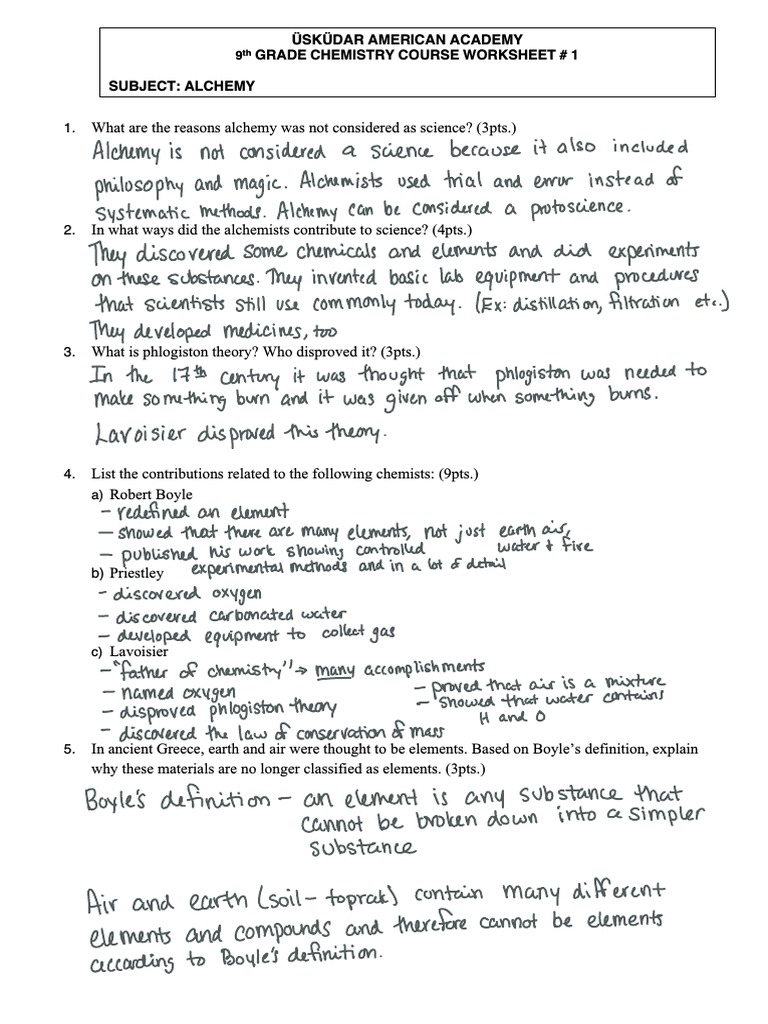 ÜSKÜDAR AMERICAN ACADEMY
9th GRADE CHEMISTRY COURSE WORKSHEET # 1
SUBJECT: ALCHEMY
1. What are the reasons alchemy was not considered as science? (3pts.)
Alchemy is not considered a science because it also included
philosophy and magic. Alchemists used trial and error instead of
systematic methods. Alchemy can be considered a protoscience.
2. In what ways did the alchemists contribute to science? (4pts.)
They discovered some chemicals and elements and did experiments
on these substances. They invented basic lab equipment and procedures
that scientists still use commonly today. (Ex: distillation, filtration etc.)
They developed medicines, too
3. What is phlogiston theory? Who disproved it? (3pts.)
In the 17th century it was thought that phlogiston was needed to
make something burn and it was given off when something burns.
Lavoisier disproved this theory.
4. List the contributions related to the following chemists: (9pts.)
a) Robert Boyle
- redefined an element
- showed that there are many elements, not just earth air,
water + fire
- published his work showing controlled
experimental methods and in a lot of detail
b) Priestley
- discovered oxygen
- discovered carbonated water
- developed equipment to collect gas
c) Lavoisier
- "father of chemistry" → many accomplishments
- named oxygen
- disproved phlogiston theory
- discovered the law of conservation of mass
- proved that air is a mixture
- showed that water contains
H and O
5. In ancient Greece, earth and air were thought to be elements. Based on Boyle's definition, explain
why these materials are no longer classified as elements. (3pts.)
Boyle's definition - an element is any substance that
cannot be broken down into a simpler
substance
Air and earth (soil - toprak) contain many different
elements and compounds and therefore cannot be elements
according to Boyle's definition.